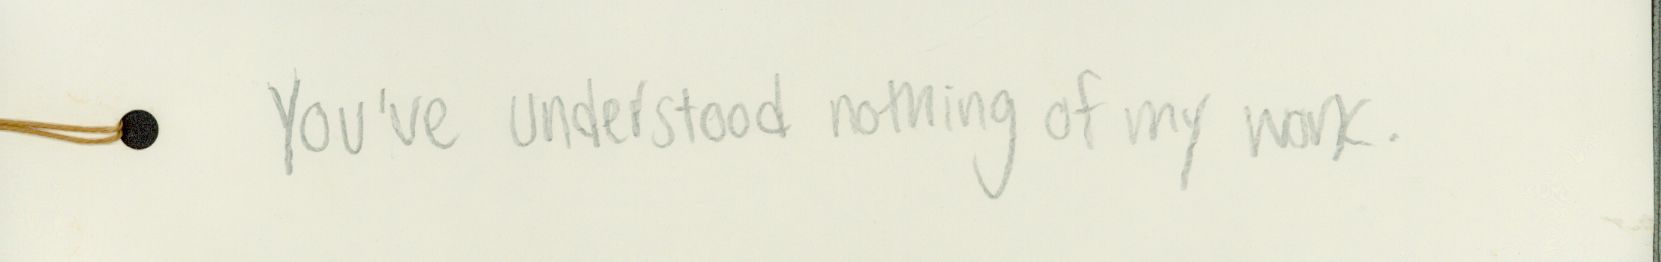 You've understood nothing of my work.